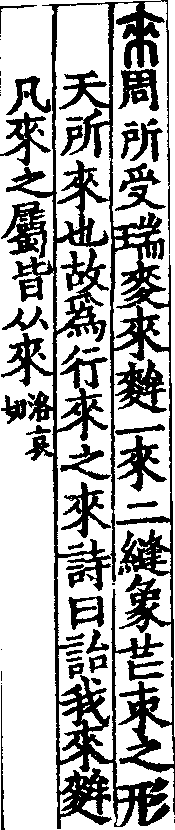 來周所受瑞麥來麰一來二縫象芒朿之形
天所來也故爲行來之來詩曰詒我來麰
凡來之屬皆从來洛哀
切